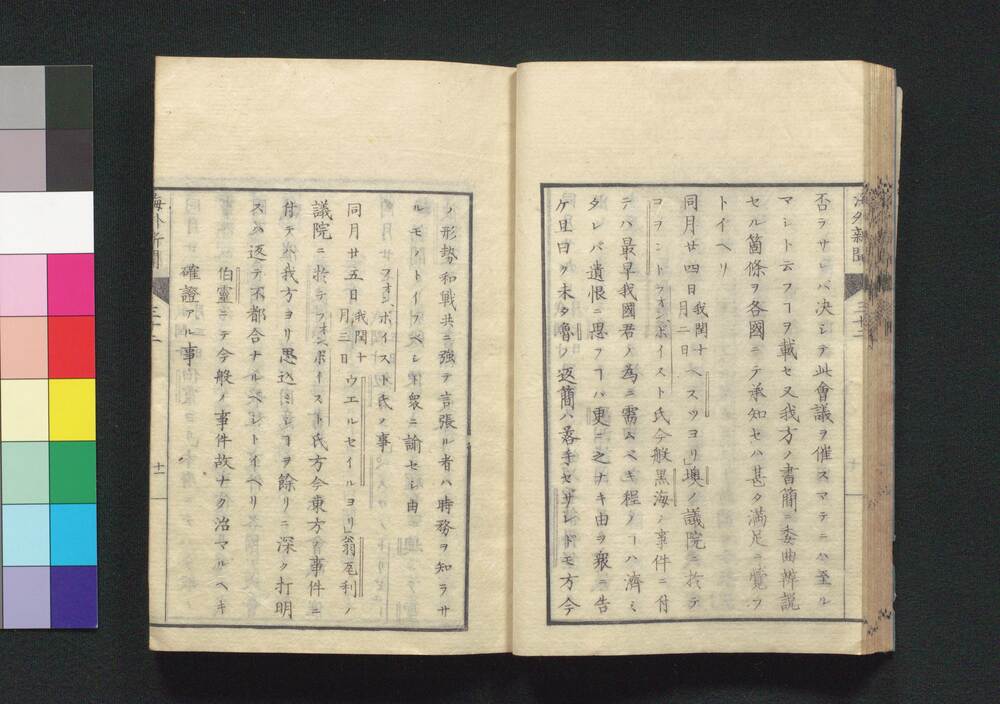 海外新聞
三十二
否ラサレバ決シテ此會議ヲ催スマテニハ至ル
マシト云フヿヲ載セ又我方ノ書簡ニ委曲辨説
セル箇條ヲ各國ニテ承知セハ甚タ満足ニ覺フ
トイヘリ
同月廿四日我閏十月二日ヘスツヨリ」墺ノ議院ニ於テ
コヲント フオンボイスト氏今般黒海ノ事件ニ付
テハ最早我國君ノ為ニ需ムベキ程ノヿハ濟ミ
タレバ遺恨ニ思フヿハ更ニ之ナキ由ヲ衆ニ告
ケ且曰ク未タ魯ノ返簡ハ落手セサレドモ方今
ノ形勢和戦共ニ強テ言張ル者ハ時務ヲ知ラサ
ルモノトイフベシ 衆ニ諭セシ由
フオンボイスト氏ノ事
同月廿五日我閏十月三日ウエルセイルヨリ」翁瓦利ノ
議院ニ於テフオンボイスト氏方今東方ノ事件ニ
付テハ我方ヨリ愚込ミシヿヲ餘リニ深ク打明
スハ返テ不都合ナルベシトイヘリ
伯靈ニテ今般ノ事件故ナク治マルヘキ
確證アル事
海外新聞
三十二
十一